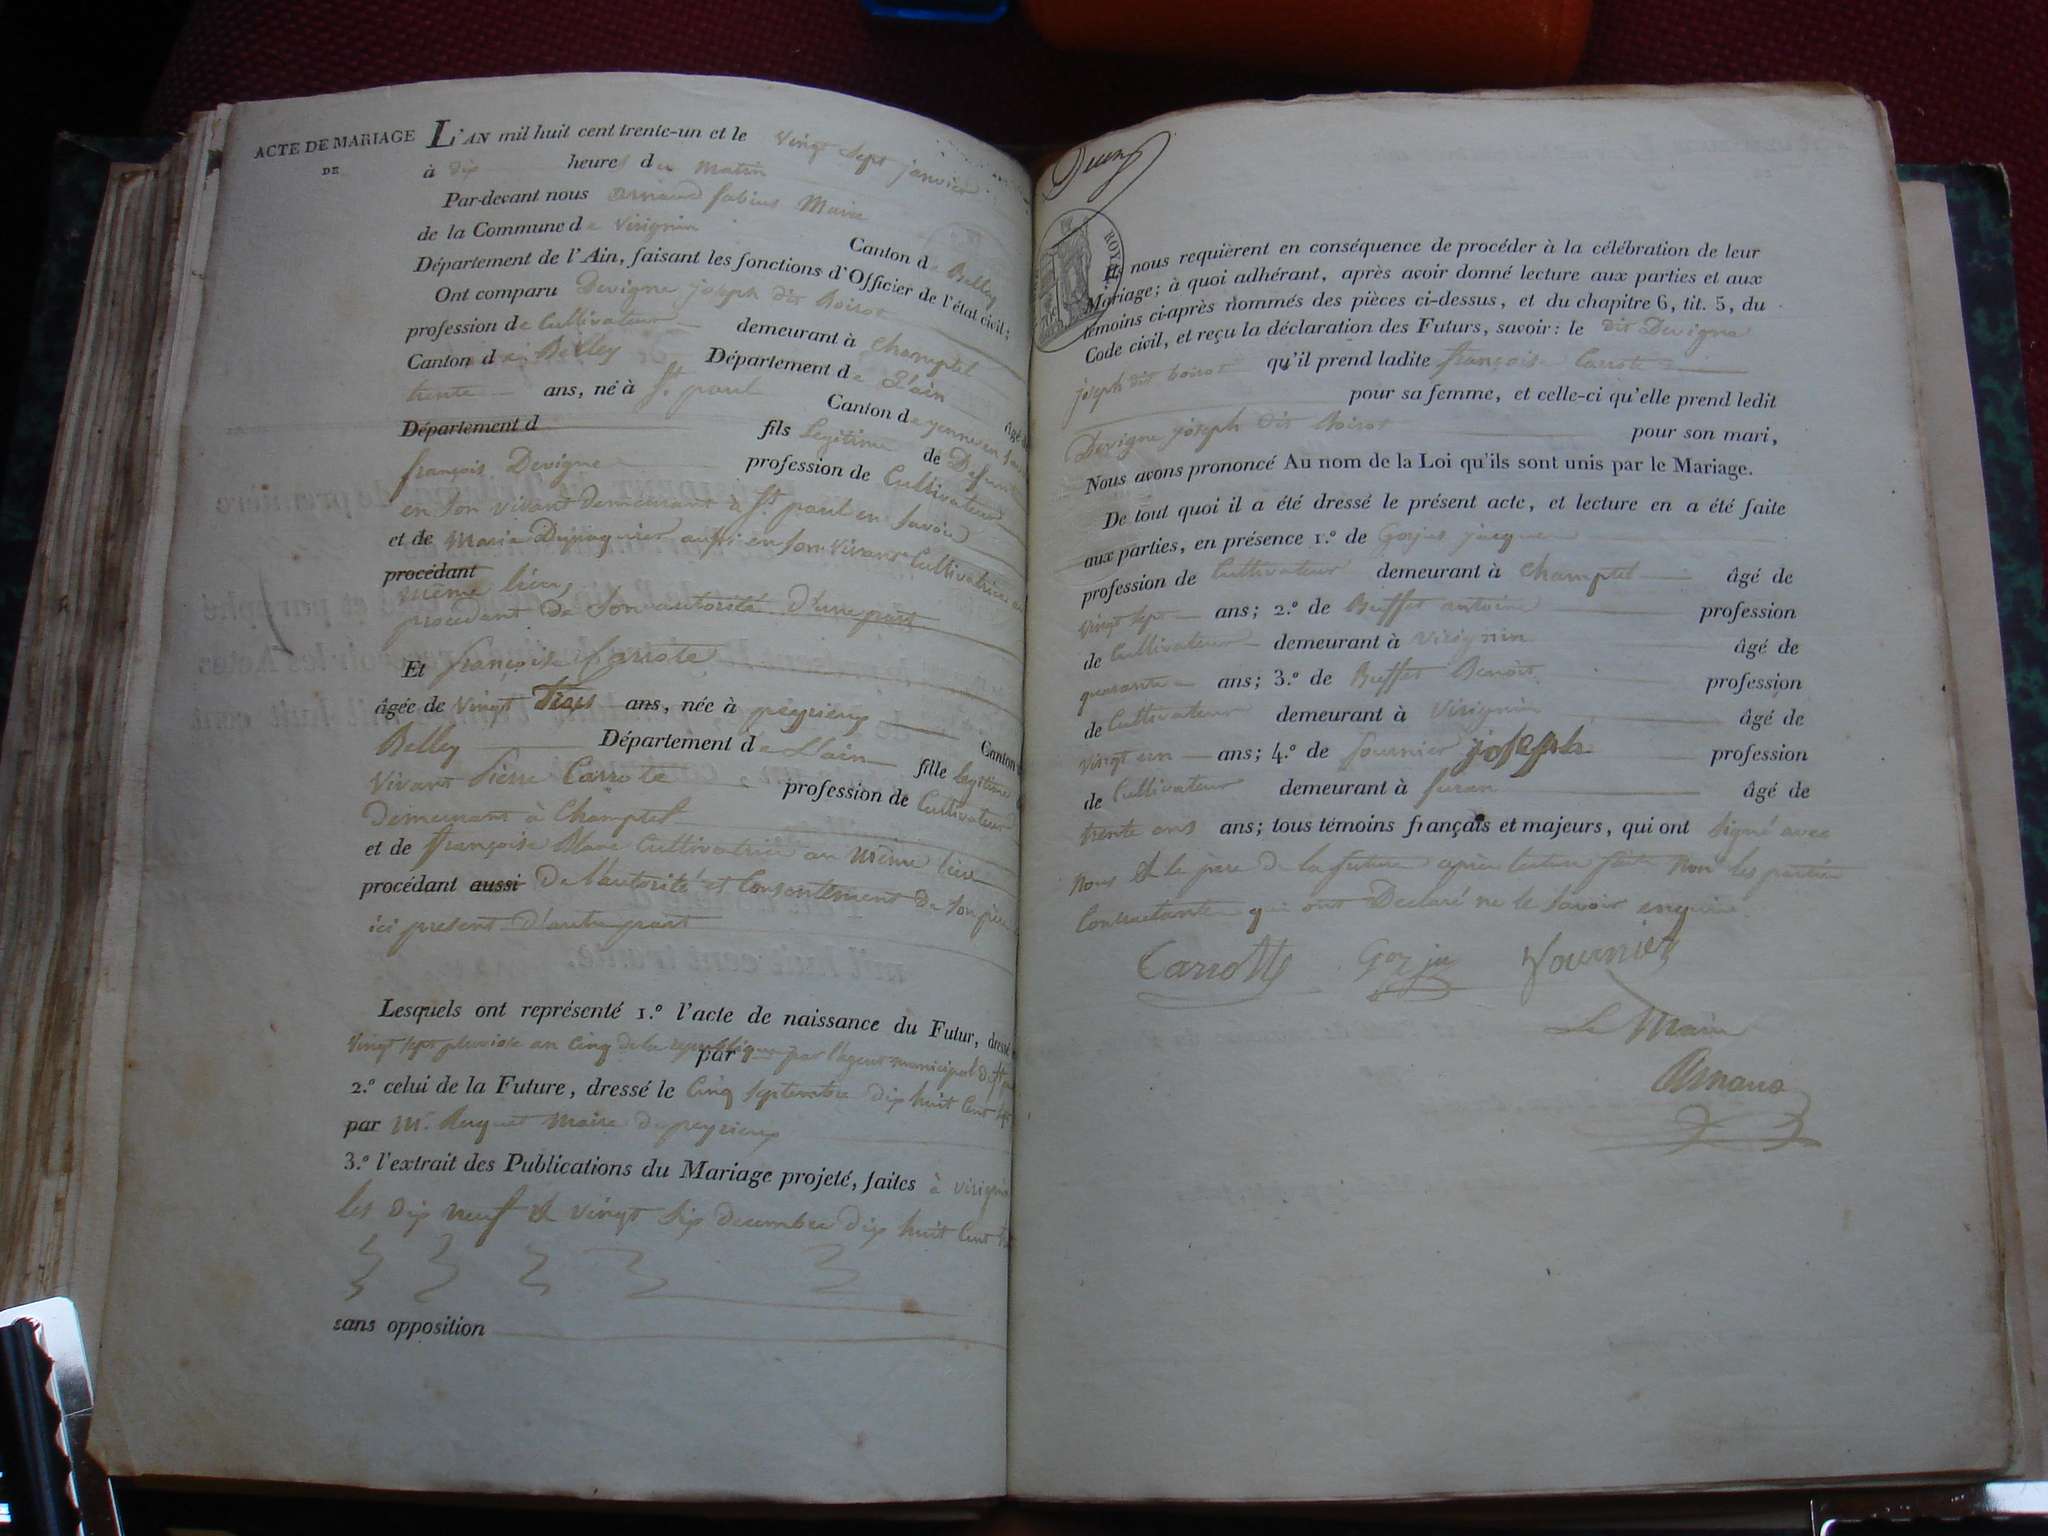 ACTE DE MARIAGE
DE
L'AN mil huit cent trente-un et le vingt sept janvier
à dix heures du matin
Par-devant nous Arnaud fabius Maire
de la Commune de Virignin Canton de Belley
Département de l'Ain, faisant les fonctions d'Officier de l'état civil;
Ont comparu Devigne joseph dit boirot
profession de Cultivateur demeurant à Champtel
Canton de Belley Département de L'ain âgé de
trente ans, né à St. paul Canton de yenne en
Département d fils Légitime de Defunt
françois Devigne profession de Cultivateur
en son vivant demeurant à St. paul en Savoie
et de Maria aussi en son vivant Cultivatrice au
procédant même lieu,
procedant de son autorité d'une part
Et françoise Carrote
âgée de vingt Trois ans, née à peyrieux Canton
Belley Département de L'ain fille legitime
vivant Pierre Carrote profession de Cultivateur
Demeurant à Champtel
et de françoise Blanc Cultivatrice au même lieu
procédant aussi De l'autorité et Consentement de son père
ici present d'autre part
Lesquels ont représenté 1.° l'acte de naissance du Futur, dressé
vingt sept pluviose an cinq de la republique par par l'agent municipal de St
2.° celui de la Future, dressé le Cinq septembre dix huit Cent sept
par Mr. maire de peyrieux
3.° l'extrait des Publications du Mariage projeté, faites à virignin
les dix neuf & vingt six decembre dix huit Cent
sans opposition
Deux
ROYAL
Ils nous requièrent en conséquence de procéder à la célébration de leur
Mariage; à quoi adhérant, après avoir donné lecture aux parties et aux
témoins ci-après nommés des pièces ci-dessus, et du chapitre 6, tit. 5, du
Code civil, et reçu la déclaration des Futurs, savoir: le dit Devigne
joseph dit boirot qu'il prend ladite françoise Carrote
pour sa femme, et celle-ci qu'elle prend ledit
Devigne joseph dit boirot pour son mari,
Nous avons prononcé Au nom de la Loi qu'ils sont unis par le Mariage.
De tout quoi il a été dressé le présent acte, et lecture en a été faite
aux parties, en présence 1.° de Gorjus jacque
profession de Cultivateur demeurant à Champtel âgé de
vingt sept ans; 2.° de Buffet antoine profession
de Cultivateur demeurant à Virignin âgé de
quarante ans; 3.° de Buffet Benoit profession
de Cultivateur demeurant à Virignin âgé de
vingt un ans; 4.° de fournier joseph profession
de Cultivateur demeurant à furan âgé de
trente ans ans; tous témoins français et majeurs, qui ont signé avec
nous & le père de la future après lecture faite non les parties
Contractantes qui ont Declaré ne le savoir enquis
Carrotte Gorju Fournier
Le Maire
Arnaud